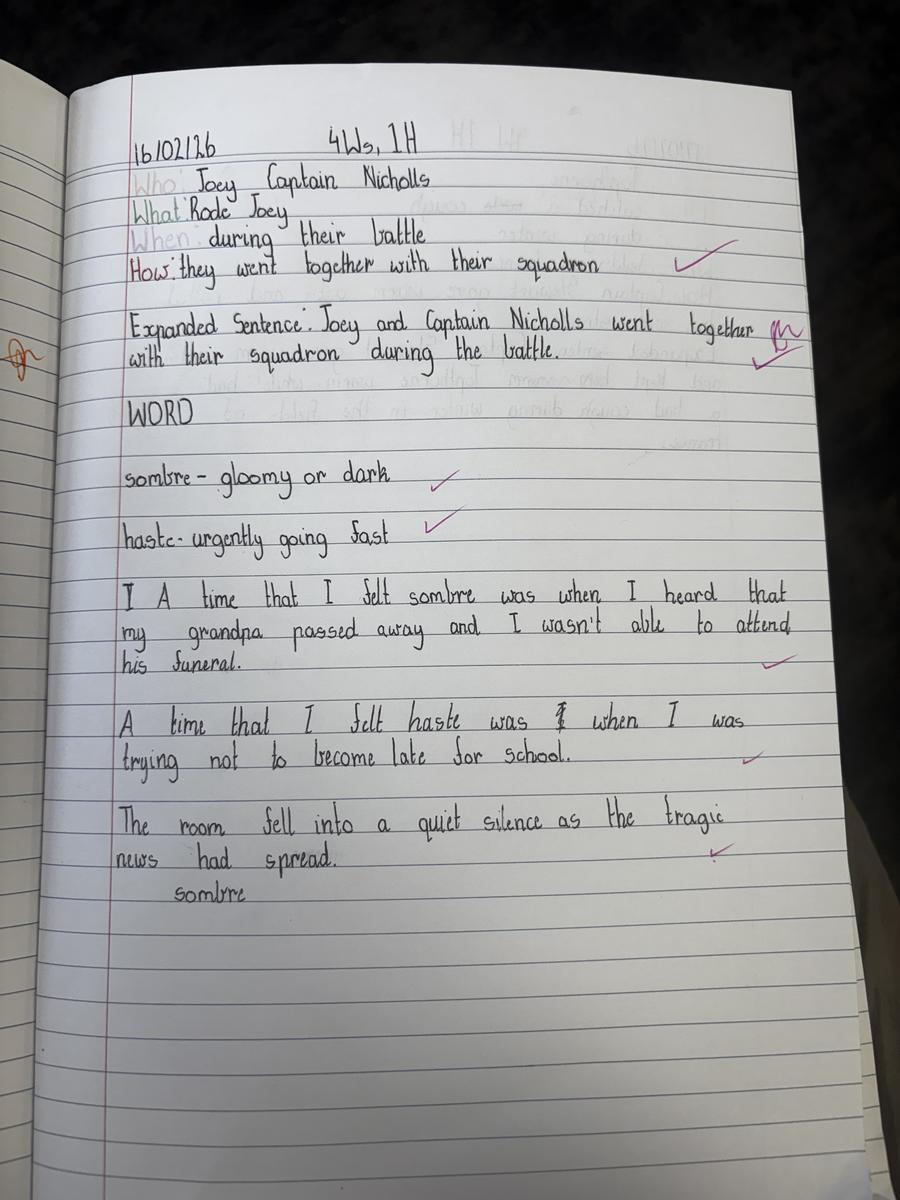 16/02/26 4Ws, 1H
Who: Joey Captain Nicholls
What: Rode Joey
When: during their battle
How: they went together with their squadron
Expanded Sentence: Joey and Captain Nicholls went together
with their squadron during the battle.
WORD
sombre - gloomy or dark
haste - urgently going fast
I A time that I felt sombre was when I heard that
my grandpa passed away and I wasn't able to attend
his funeral.
A time that I felt haste was I when I was
trying not to become late for school.
The room fell into a quiet silence as the tragic
news had spread.
sombre